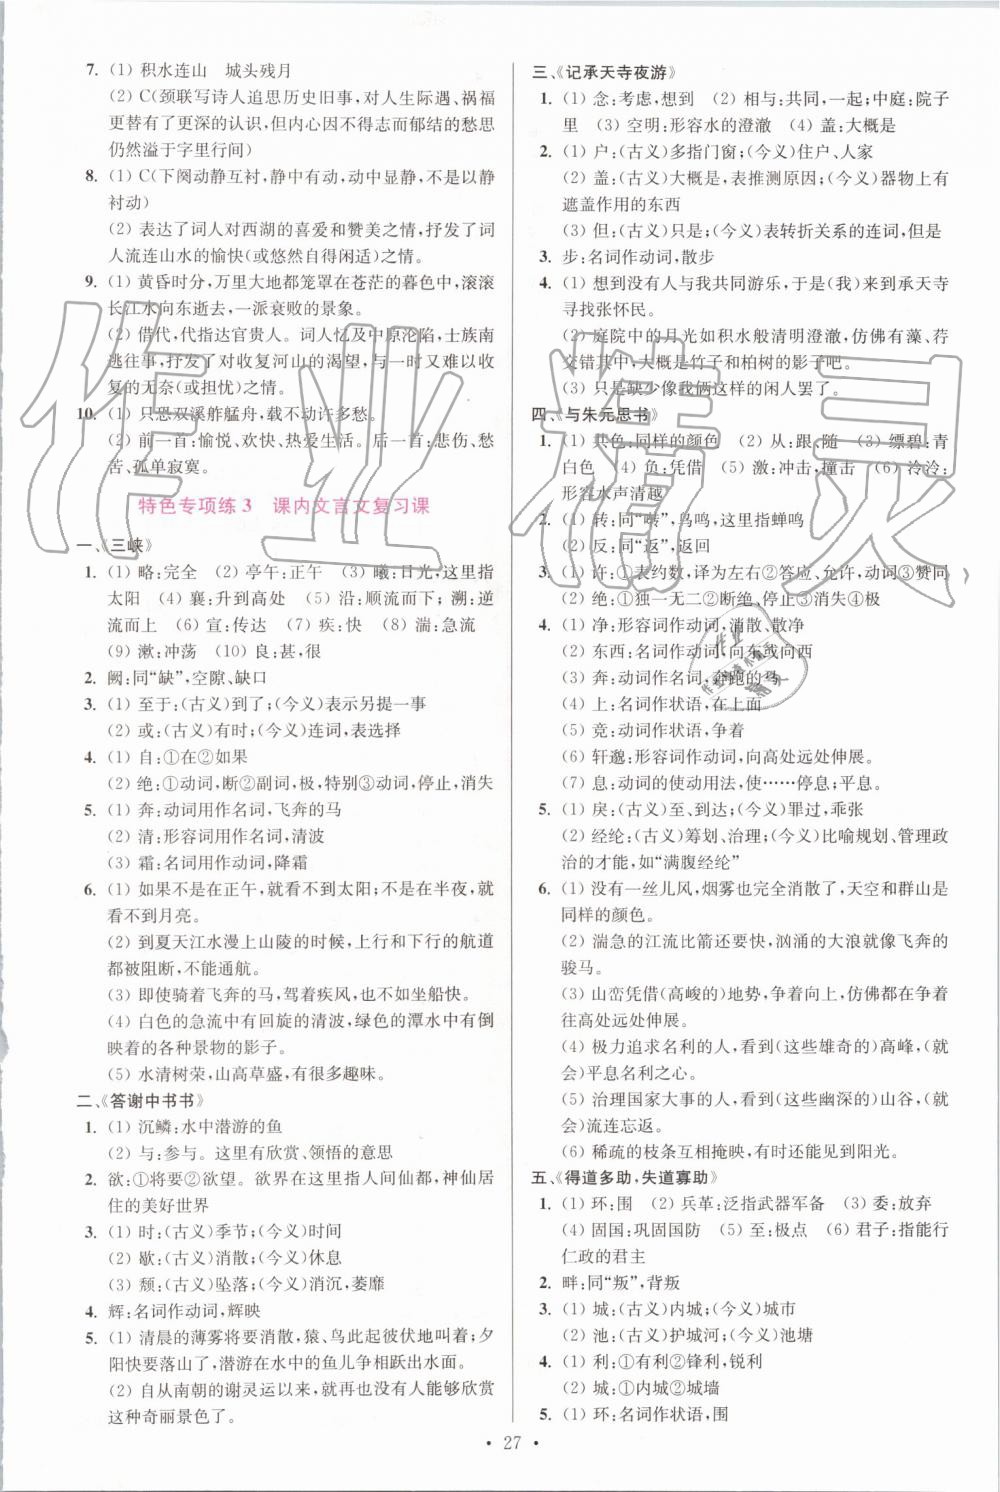 7. (1) 积水连山　城头残月
(2) C(颈联写诗人追思历史旧事,对人生际遇、祸福
更替有了更深的认识,但内心因不得志而郁结的愁思
仍然溢于字里行间)
8. (1) C(下阕动静互衬,静中有动,动中显静,不是以静
衬动)
(2) 表达了词人对西湖的喜爱和赞美之情,抒发了词
人流连山水的愉快(或悠然自得闲适)之情。
9. (1) 黄昏时分,万里大地都笼罩在苍茫的暮色中,滚滚
长江水向东逝去,一派衰败的景象。
(2) 借代,代指达官贵人。词人忆及中原沦陷,士族南
逃往事,抒发了对收复河山的渴望,与一时又难以收
复的无奈(或担忧)之情。
10. (1) 只恐双溪舴艋舟,载不动许多愁。
(2) 前一首:愉悦、欢快、热爱之情。后一首:悲伤、愁
苦、孤单寂寞。
特色专项练 3　课内文言文复习课
一、《三峡》
1. (1) 略:完全　(2) 亭午:正午　(3) 曦:日光,这里指
太阳　(4) 襄:升到高处　(5) 沿:顺流而下;溯:逆
流而上　(6) 宣:传达　(7) 疾:快　(8) 湍:急流
(9) 漱:冲荡　(10) 良:甚,很
2. 阙:同“缺”,空隙、缺口
3. (1) 至于:(古义)到了;(今义)表示另提一事
(2) 或:(古义)有时;(今义)连词,表选择
4. (1) 自:①在②如果
(2) 绝:①动词,断②副词,极,特别③动词,停止,消失
5. (1) 奔:动词用作名词,飞奔的马
(2) 清:形容词用作名词,清波
(3) 霜:名词用作动词,降霜
6. (1) 如果不是在正午,就看不到太阳;不是在半夜,就
看不到月亮。
(2) 到夏天江水漫上山陵的时候,上行和下行的航道
都被阻断,不能通航。
(3) 即使骑着飞奔的马,驾着疾风,也不如坐船快。
(4) 白色的急流中有回旋的清波,绿色的潭水中有倒
映着的各种景物的影子。
(5) 水清树荣,山高草盛,有很多趣味。
二、《答谢中书书》
1. (1) 沉鳞:水中潜游的鱼
(2) 与:参与。这里有欣赏、领悟的意思
2. 欲:①将要②欲望。欲界在这里指人间仙都,神仙居
住的美好世界
3. (1) 时:(古义)季节;(今义)时间
(2) 歇:(古义)消散;(今义)休息
(3) 颓:(古义)坠落;(今义)消沉,萎靡
4. 辉:名词作动词,辉映
5. (1) 清晨的薄雾将要消散,猿、鸟此起彼伏地叫着;夕
阳快要落山了,潜游在水中的鱼儿争相跃出水面。
(2) 自从南朝的谢灵运以来,就再也没有人能够欣赏
这种奇丽景色了。
三、《记承天寺夜游》
1. (1) 念:考虑,想到　(2) 相与:共同,一起;中庭:院子
里　(3) 空明:形容水的澄澈　(4) 盖:大概是
2. (1) 户:(古义)多指门窗;(今义)住户、人家
(2) 盖:(古义)大概是,表推测原因;(今义)器物上有
遮盖作用的东西
(3) 但:(古义)只是;(今义)表转折关系的连词,但是
3. 步:名词作动词,散步
4. (1) 想到没有人与我共同游乐,于是(我)来到承天寺
寻找张怀民。
(2) 庭院中的月光如积水般清明澄澈,仿佛有藻、荇
交错其中,大概是竹子和柏树的影子吧。
(3) 只是缺少像我俩这样的闲人罢了。
四、《与朱元思书》
1. (1) 共色:同样的颜色　(2) 从:跟,随　(3) 缥碧:青
白色　(4) 负:凭借　(5) 激:冲击,撞击　(6) 泠泠:
形容水声清越
2. (1) 转:同“啭”,鸟鸣,这里指蝉鸣
(2) 反:同“返”,返回
3. (1) 许:①表约数,译为左右②答应、允许,动词③赞同
(2) 绝:①独一无二②断绝,停止③消失④极
4. (1) 净:形容词作动词,消散、散净
(2) 东西:名词作动词,向东或向西
(3) 奔:动词作名词,奔跑的马
(4) 上:名词作状语,在上面
(5) 竞:动词作状语,争着
(6) 轩邈:形容词作动词,向高处远处伸展。
(7) 息:动词的使动用法,使……停息;平息。
5. (1) 戾:(古义)至、到达;(今义)罪过,乖张
(2) 经纶:(古义)筹划、治理;(今义)比喻规划、管理政
治的才能,如“满腹经纶”
6. (1) 没有一丝儿风,烟雾也完全消散了,天空和群山是
同样的颜色。
(2) 湍急的江流比箭还要快,汹涌的大浪就像飞奔的
骏马。
(3) 山峦凭借(高峻的)地势,争着向上,仿佛都在争着
往高处远处伸展。
(4) 极力追求名利的人,看到(这些雄奇的)高峰,(就
会)平息名利之心。
(5) 治理国家大事的人,看到(这些幽深的)山谷,(就
会)流连忘返。
(6) 稀疏的枝条互相掩映,有时还能见到阳光。
五、《得道多助,失道寡助》
1. (1) 环:围　(2) 兵革:泛指武器军备　(3) 委:放弃
(4) 固国:巩固国防　(5) 至:极点　(6) 君子:指能行
仁政的君主
2. 畔:同“叛”,背叛
3. (1) 城:(古义)内城;(今义)城市
(2) 池:(古义)护城河;(今义)池塘
4. (1) 利:①有利②锋利,锐利
(2) 城:①内城②城墙
5. (1) 环:名词作状语,围
• 27 •
作业精灵